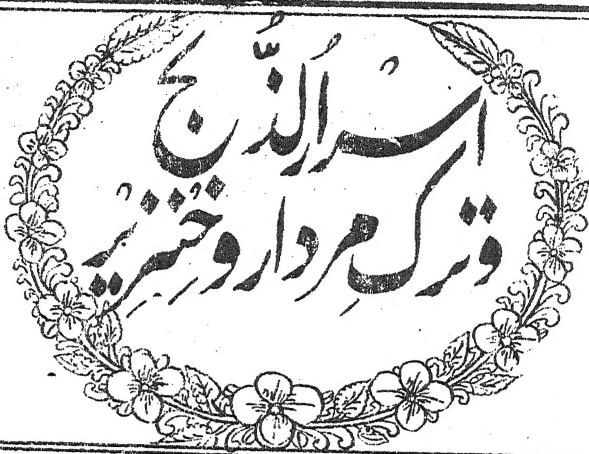 اسرار الذُّبح
وترک مِردار وخِنزِیر